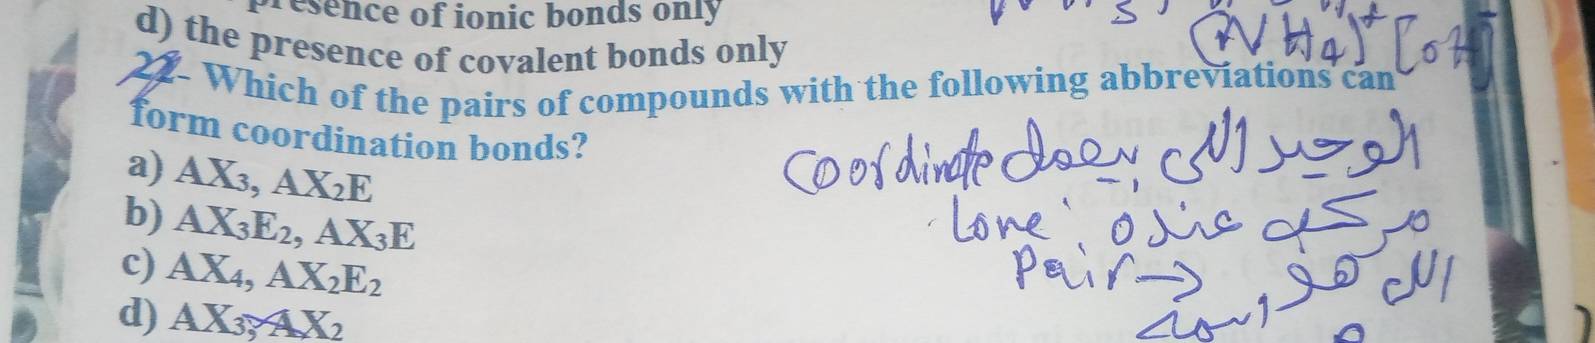 presence of ionic bonds only
d) the presence of covalent bonds only
(NH₄)⁺ [OH]⁻
22- Which of the pairs of compounds with the following abbreviations can
form coordination bonds?
a) AX₃, AX₂E
b) AX₃E₂, AX₃E
c) AX₄, AX₂E₂
d) AX₃, AX₂
الوحيد اللي يعمل coordinate
مركب عنده lone
pair → اللي هو